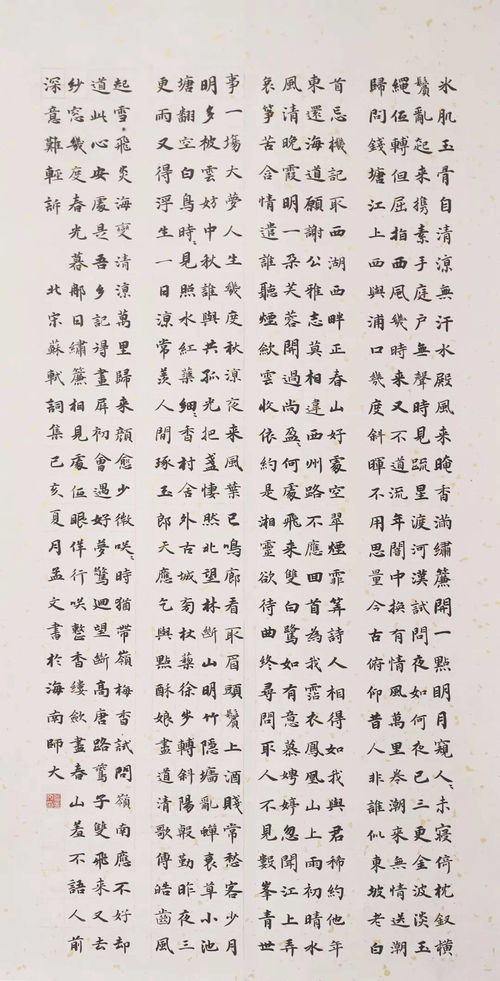 氷肌玉骨自清涼無汗水殿風来暗香滿繡簾開一點明月窺人、未寢倚枕釵橫
鬢亂起来携素手庭户無聲時見疏星渡河漢試問夜如何夜已三更金波淡玉
繩低轉但屈指西風幾時来又不道流年暗中換有情風萬里卷潮来無情送潮
歸問錢塘江上西興浦口幾度斜暉不用思量今古俯仰昔人非誰似東坡老白
首忘機記取西湖西畔正春山好處空翠煙霏算詩人相得如我與君稀約他年
東還海道願謝公雅志莫相違西州路不應回首為我霑衣鳳凰山上雨初晴水
風清晚霞明一朵芙蓉開過尚盈、何處飛来雙白鷺如有意慕娉婷忽聞江上弄
哀箏苦含情遣誰聽煙斂雲收依約是湘靈欲待曲終尋問取人不見數峯青世
事一場大夢人生幾度秋涼夜来風葉已鳴廊看取眉頭鬢上酒賤常愁客少月
明多被雲妨中秋誰與共孤光把盞悽然北望林斷山明竹隱墻亂蟬衰草小池
塘翻空白鳥時、見照水紅蕖細、香村舍外古城旁杖藜徐步轉斜陽殷勤昨夜三
更雨又得浮生一日涼常羨人間琢玉郎天應乞與點酥娘盡道清歌傳皓齒風
起雪飛炎海變清涼萬里歸来顏愈少微咲、時猶帶嶺梅香試問嶺南應不好却
道此心安處是吾鄉記得畫屏初會遇好夢驚迴望斷高唐路鷰子雙飛来又去
紗窓幾度春光暮那日繡簾相見處低眼佯行咲整香縷斂盡春山羞不語人前
深意難輕訴 北宋蘇軾詞集己亥夏月孟文書於海南師大